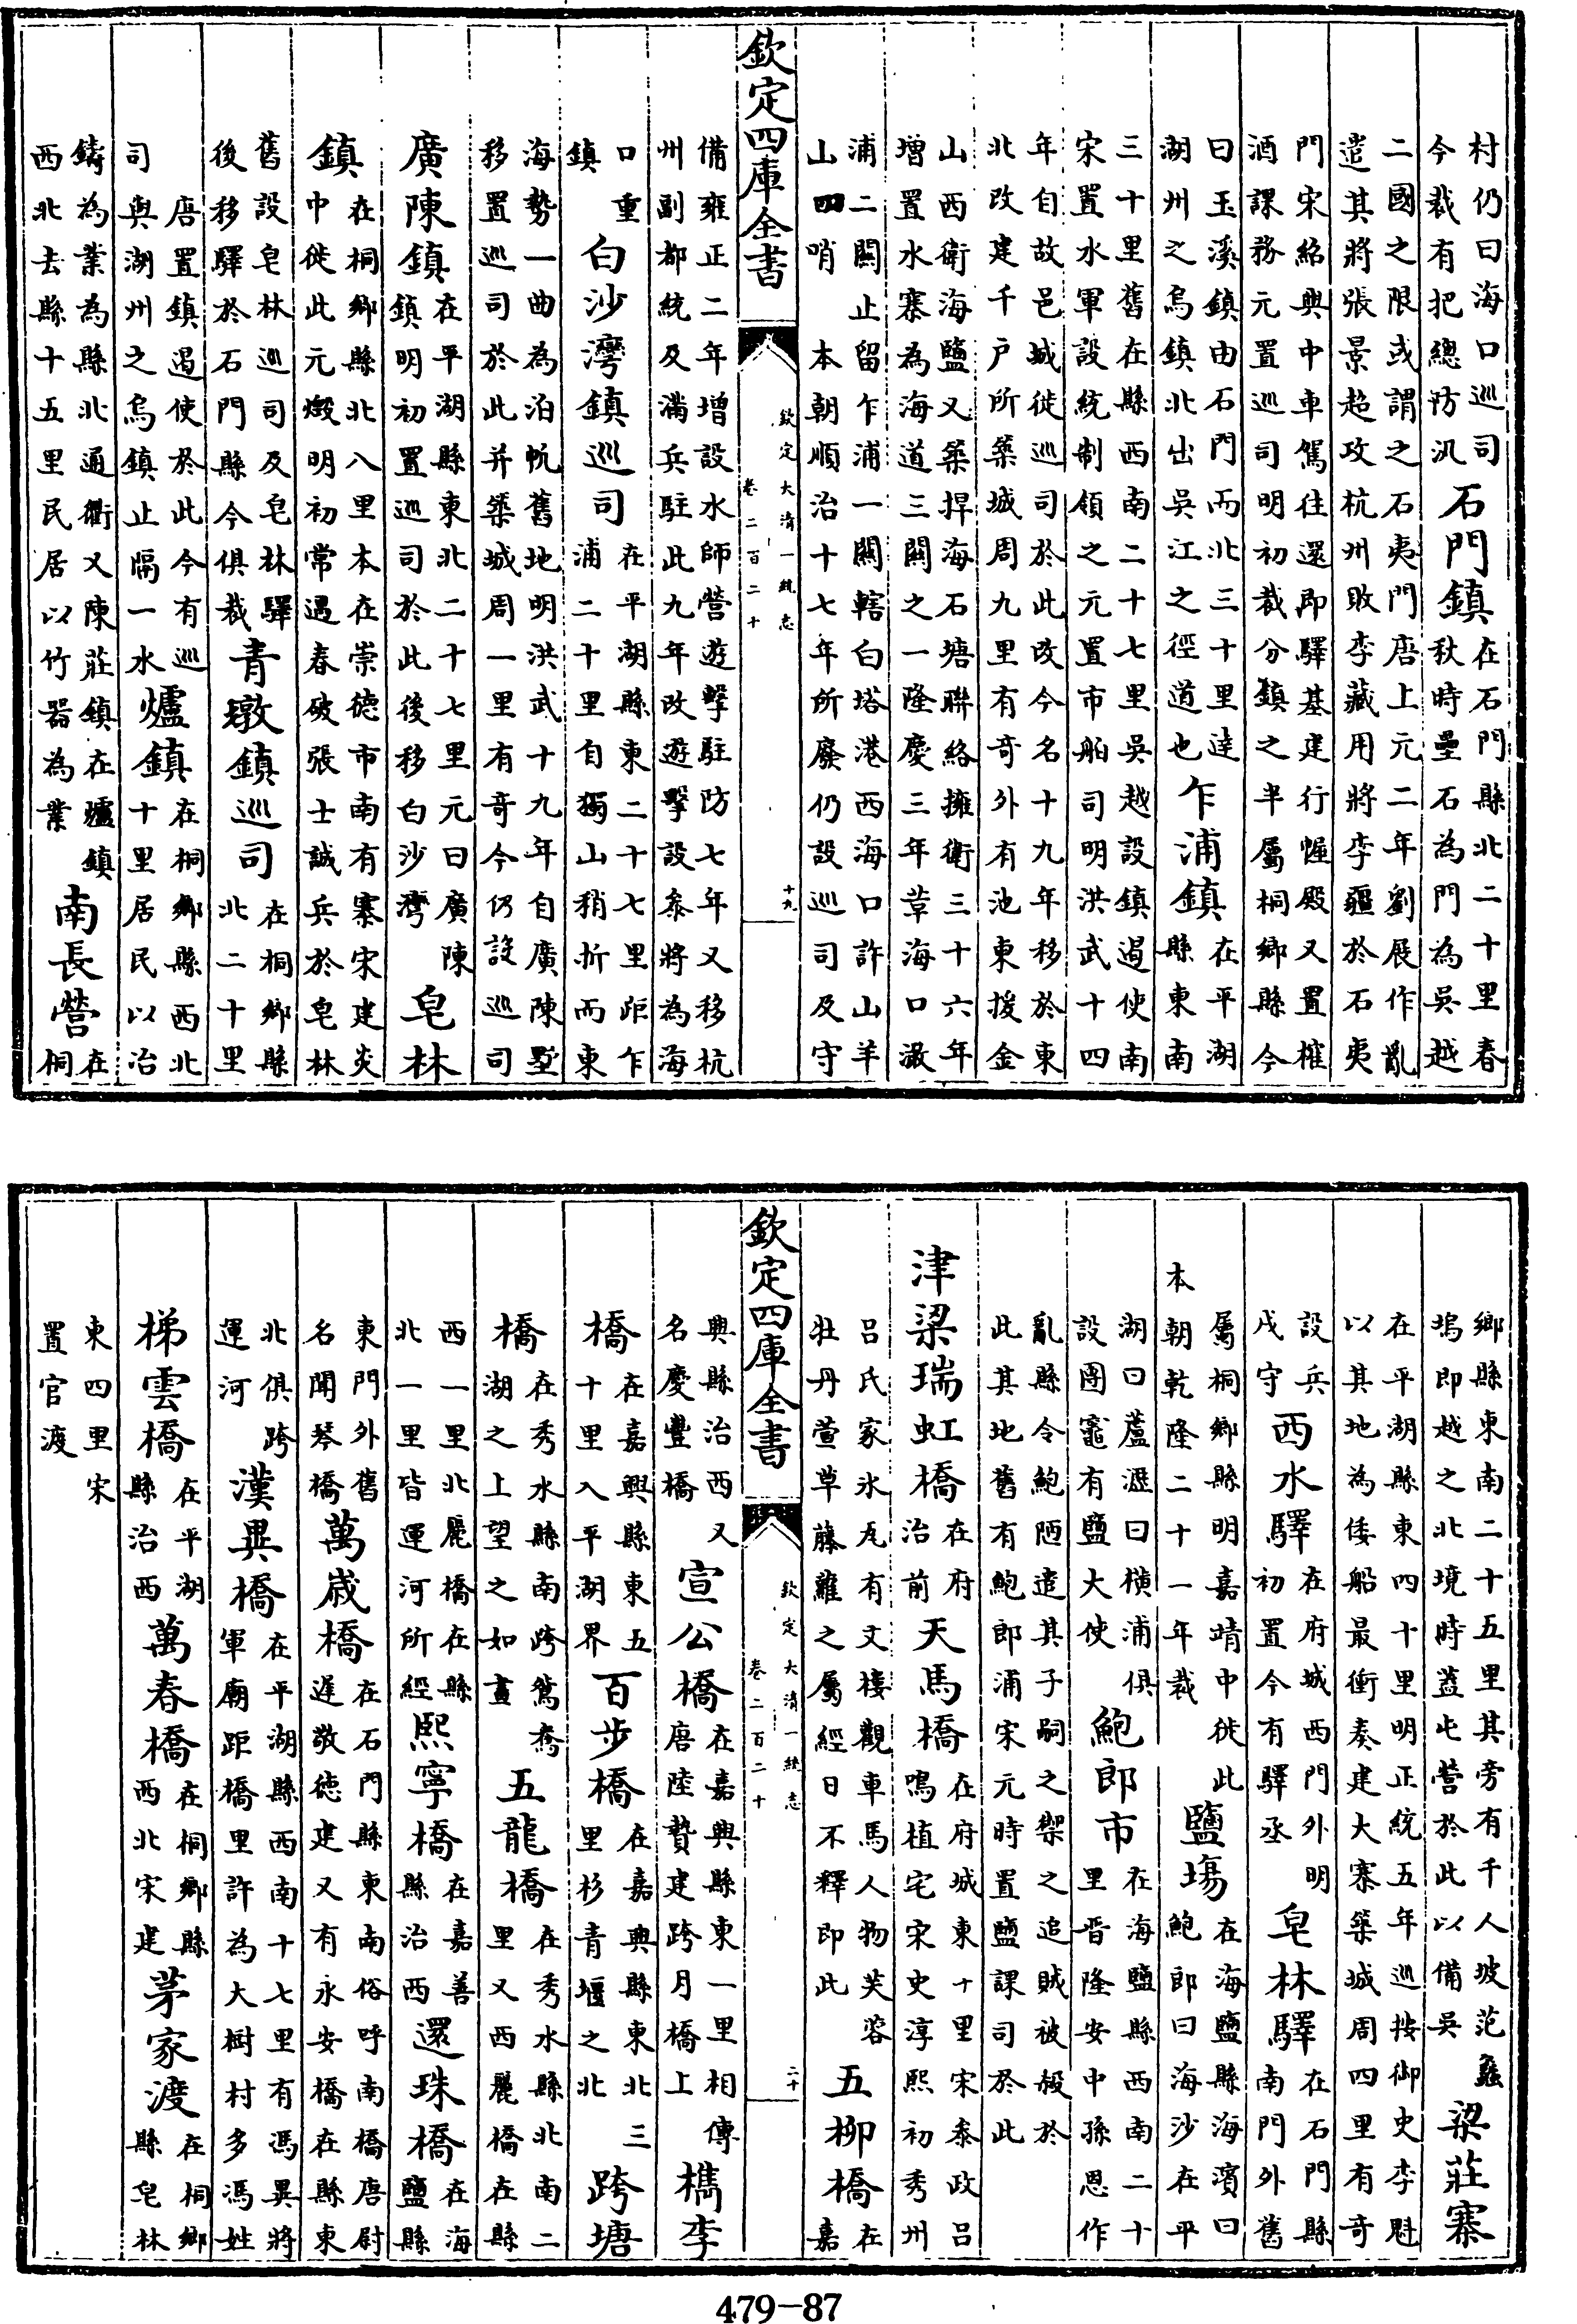 村仍曰海口巡司今裁有把總防汛石門鎮在石門縣北二十里春秋時壘石為門為吳越
二國之限或謂之石夷門唐上元二年劉展作亂遣其將張景超攻杭州敗李藏用將李疆於石夷
門宋紹興中車駕往還即驛基建行幄殿又置榷酒課務元置巡司明初裁分鎮之半屬桐鄉縣今
曰玉溪鎮由石門而北三十里達湖州之烏鎮北出吳江之徑道也乍浦鎮在平湖縣東南
三十里舊在縣西南二十七里吳越設鎮遏使南宋置水軍設統制領之元置市舶司明洪武十四
年自故邑城徙巡司於此改今名十九年移於東北改建千戶所築城周九里有奇外有池東援金
山西衛海鹽又築捍海石塘聯絡擁衛三十六年增置水寨為海道三關之一隆慶三年革海口澉
浦二關止留乍浦一關轄白塔港西海口許山羊山四哨本朝順治十七年所廢仍設巡司及守
欽定四庫全書 欽定大清一統志 卷二百二十 十九
備雍正二年增設水師營遊擊駐防七年又移杭州副都統及滿兵駐此九年改遊擊設叅將為海
口重鎮白沙灣鎮巡司在平湖縣東二十七里距乍浦二十里自獨山稍折而東
海勢一曲為泊帆舊地明洪武十九年自廣陳墅移置巡司於此并築城周一里有奇今仍設巡司
廣陳鎮在平湖縣東北二十七里元曰廣陳鎮明初置巡司於此後移白沙灣皂林
鎮在桐鄉縣北八里本在崇德市南有寨宋建炎中徙此元燬明初常遇春破張士誠兵於皂林
舊設皂林巡司及皂林驛後移驛於石門縣今俱裁青墩鎮巡司在桐鄉縣北二十里
唐置鎮遏使於此今有巡司與湖州之烏鎮止隔一水爐鎮在桐鄉縣西北十里居民以冶
鑄為業為縣北通衢又陳莊鎮在爐鎮西北去縣十五里民居以竹器為業南長營在桐
鄉縣東南二十五里其旁有千人坡范蠡塢即越之北境時蓋屯營於此以備吳梁莊寨
在平湖縣東四十里明正統五年巡按御史李魁以其地為倭船最衝奏建大寨築城周四里有奇
設兵戍守西水驛在府城西門外明初置今有驛丞皂林驛在石門縣南門外舊
屬桐鄉縣明嘉靖中徙此本朝乾隆二十一年裁鹽場在海鹽縣海濱曰鮑郎曰海沙在平
湖曰蘆瀝曰橫浦俱設團竈有鹽大使鮑郎市在海鹽縣西南二十里晉隆安中孫恩作
亂縣令鮑陋遣其子嗣之禦之追賊被殺於此其地舊有鮑郎浦宋元時置鹽課司於此
津梁瑞虹橋在府治前天馬橋在府城東十里宋叅政呂鳴植宅宋史淳熙初秀州
呂氏家氷瓦有文樓觀車馬人物芙蓉牡丹萱草藤蘿之屬經日不釋即此五柳橋在嘉
欽定四庫全書 欽定大清一統志 卷二百二十 二十
興縣治西又名慶豐橋宣公橋在嘉興縣東一里相傳唐陸贄建跨月橋上檇李
橋在嘉興縣東五十里入平湖界百步橋在嘉興縣東北三里杉青堰之北跨塘
橋在秀水縣南跨鴛鴦湖之上望之如畫五龍橋在秀水縣北南二里又西麗橋在縣
西一里北麗橋在縣北一里皆運河所經熙寧橋在嘉善縣治西還珠橋在海鹽縣
東門外舊名聞琴橋萬歲橋在石門縣東南俗呼南橋唐尉遲敬德建又有永安橋在縣東
北俱跨運河漢異橋在平湖縣西南十七里有馮異將軍廟距橋里許為大樹村多馮姓
梯雲橋在平湖縣治西萬春橋在桐鄉縣西北宋建茅家渡在桐鄉縣皂林
東四里宋置官渡
479-87